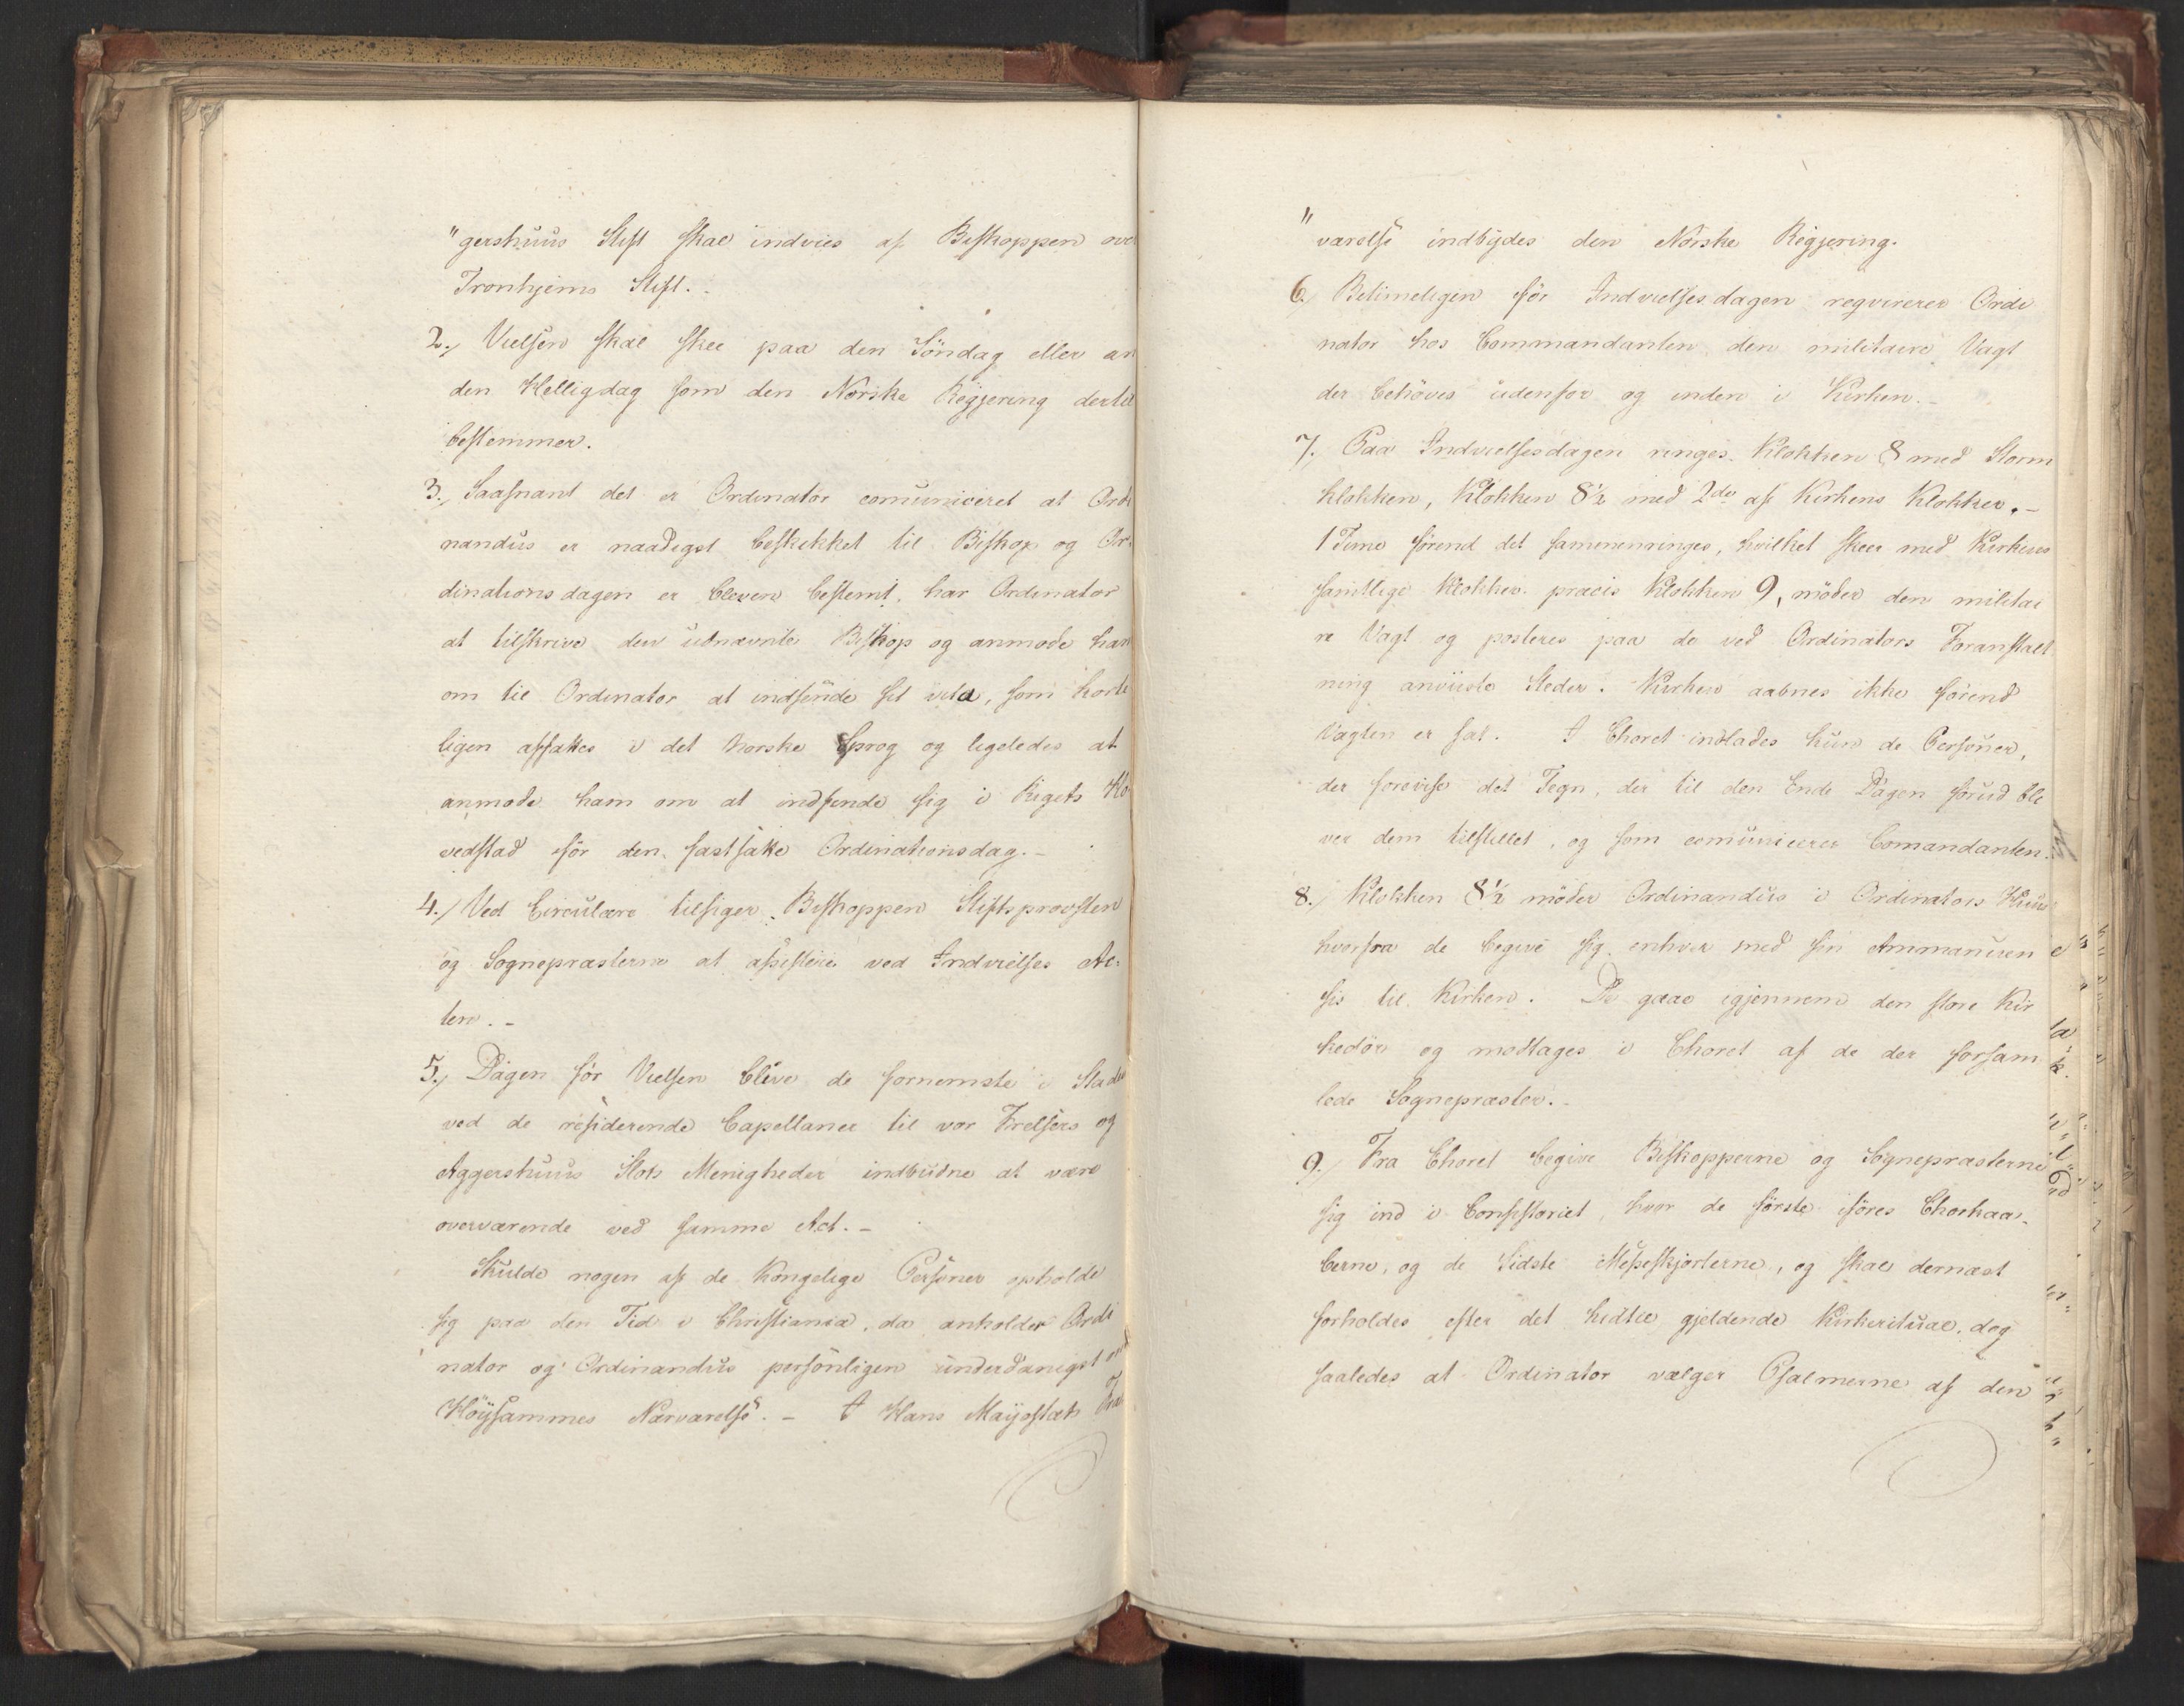 "gershuus Stift skal indvies af Biskoppen over
Tronhjems Stift.
2., Vielsen skal skee paa den Söndag eller an
den Helligdag som den Norske Regjering dertil
bestemmer.
3., Saasnart det er Ordinator comuniceret at Ordi
nandus er naadigst beskikket til Biskop og Or-
dinationsdagen er bleven bestemt, har Ordinator
at tilskrive den udnævnte Biskop og anmode ham
om til Ordinator at indsende sit vita, som korte
ligen affattes i det norske Sprog og ligeledes at
anmode ham om at indfinde sig i Rigets Ho
vedstad för den fastsatte Ordinationsdag.-
4., Ved Circulære tilsiger Biskoppen Stiftsprovsten
og Sognepræsterne at assistere ved Indvielses Ac-
ten.-
5., Dagen för Vielsen blive de fornemste i Staden
ved de residerende Capellaner til vor Frelsers og
Aggershuus Slots Menigheder indbudne at være
overværende ved samme Act.-
Skulde nogen af de Kongelige Personer opholde
sig paa den Tid i Christiania, da anholder Ordi
nator og Ordinandus personligen underdanigst om
Höysammes Nærværelse.- I Hans Majestæts Fra
"værelse indbydes den Norske Regjering.
6., Betimeligen för Indvielsesdagen reqvirerer Ordi
nator hos Commandanten den militaire Vagt
der behöves udenfor og inden i Kirken.-
7., Paa Indvielsesdagen ringes Klokken 8 med Storm
klokken, Klokken 8½ med 2de af Kirkens Klokker.-
1 Time förend det sammenringes, hvilket skeer med Kirkens
samtlige Klokker præcis Klokken 9, möder den militai
re Vagt og posteres paa de ved Ordinators Foranstalt
ning anviiste Steder. Kirken aabnes ikke förend
Vagten er sat. I Choret indlades kun de Personer,
der forevise det Tegn, der til den Ende Dagen forud bli
ver dem tilstillet, og som comuniceres Comandanten.
8., Klokken 8½ möder Ordinandus i Ordinators Huus
hvorfra de begive sig enhver med sin Ammanuen
sis til Kirken. De gaae igjennem den store Kir
kedör og modtages i Choret af de der forsam
lede Sognepræster.-
9., Fra Choret begive Biskopperne og Sognepræsterne
sig ind i Consistoriet, hvor de förste iföres Chorkaa-
berne, og de Sidste Messeskjorterne, og skal dernæst
forholdes efter det hidtil gjeldende Kirkeritual, dog
saaledes at Ordinator vælger Psalmerne af den